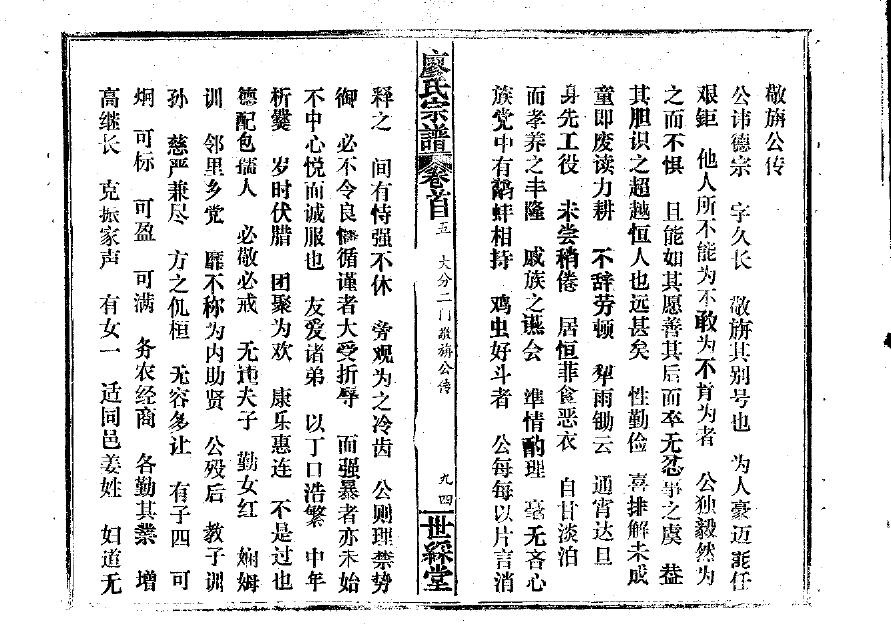 敬旃公传
公讳德宗 字久长 敬旃其别号也 为人豪迈能任
艰钜 他人所不能为不敢为不肯为者 公独毅然为
之而不惧 且能如其愿善其后而卒无忝事之虞 益
其胆识之超越恒人也远甚矣 性勤俭 喜排解未成
童即废读力耕 不辞劳顿 犁雨锄云 通宵达旦
身先工役 未尝稍倦 居恒菲食恶衣 自甘淡泊
而孝养之丰隆 戚族之讌会 准情酌理 毫无吝心
族党中有鹬蚌相持 鸡虫好斗者 公每每以片言消
廖氏宗谱 卷首 五 大分二门敬旃公传 九四 世綵堂
释之 间有恃强不休 旁观为之冷齿 公则理禁势
御 必不令良懦循谨者大受折辱 而强暴者亦未始
不中心悦而诚服也 友爱诸弟 以丁口浩繁 中年
析爨 岁时伏腊 团聚为欢 康乐惠连 不是过也
德配包孺人 必敬必戒 无违夫子 勤女红 娴姆
训 邻里乡党 靡不称为内助贤 公殁后 教子训
孙 慈严兼尽 方之仉桓 无容多让 有子四 可
炯 可标 可盈 可满 务农经商 各勤其业 增
高继长 克振家声 有女一 适同邑姜姓 妇道无